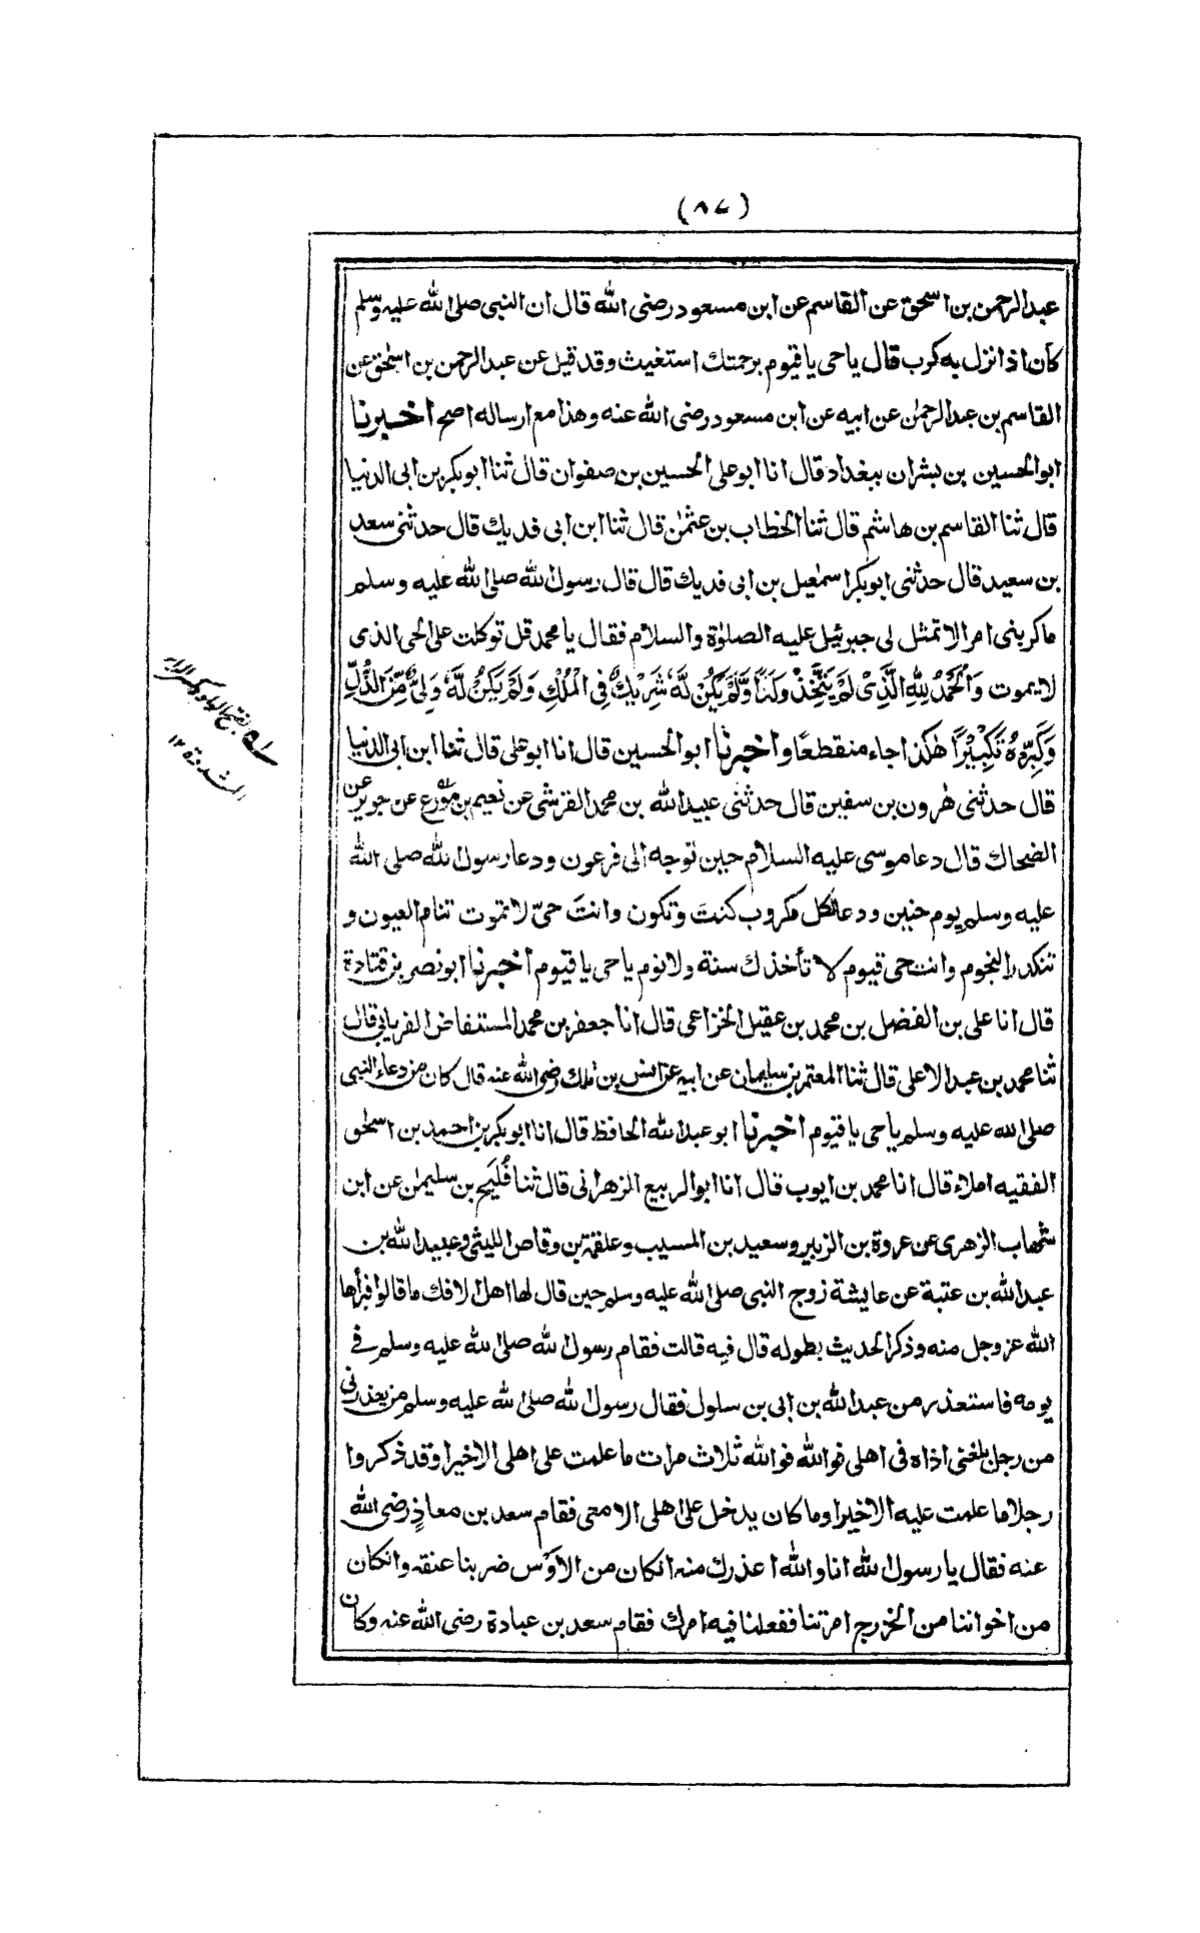 (٨٧)
عبدالرحمن بن اسحق عن القاسم عن ابن مسعود رضى الله قال ان النبى صلى الله عليه وسلم
كان اذا نزل به كرب قال ياحى ياقيوم برحمتك استغيث وقد قيل عن عبدالرحمن بن اسحٰق عن
القاسم بن عبدالرحمٰن عن ابيه عن ابن مسعود رضى الله عنه وهذا مع ارساله اصح اخبرنا
ابوالحسين بن بشران ببغداد قال انا ابوعلى الحسين بن صفوان قال ثنا ابوبكر بن ابى الدنيا
قال ثنا القاسم بن هاشم قال ثنا الخطاب بن عثمٰن قال ثنا ابن ابى فديك قال حدثنى سعد
بن سعيد قال حدثنى ابوبكر اسمٰعيل بن ابى فديك قال قال رسول الله صلى الله عليه وسلم
ماكربنى امر الاتمثل لى جبرئيل عليه الصلوٰة والسلام فقال يا محمد قل توكلت على الحى الذى
لايموت وَالْحَمْدُ لِلّٰهِ الَّذِىْ لَمْ يَتَّخِذْ وَلَدًا وَّلَمْ يَكُنْ لَّهٗ شَرِيْكٌ فِى الْمُلْكِ وَلَمْ يَكُنْ لَّهٗ وَلِىٌّ مِّنَ الذُّلِّ
وَكَبِّرْهُ تَكْبِيْرًا هٰكذا جاء منقطعًا واخبرنا ابوالحسين قال انا ابوعلى قال ثنا ابن ابى الدنيا
قال حدثنى هٰرون بن سفيٰن قال حدثنى عبيدالله بن محمد القرشى عن نعيم بن مورع عن جويبر عن
الضحاك قال دعا موسى عليه السلام حين توجه الى فرعون ودعا رسول الله صلى الله
عليه وسلم يوم حنين ودعا لكل مكروب كنتَ وتكون وانتَ حىّ لاتموت تنام العيون و
تنكدر النجوم وانت حى قيوم لا تأخذك سنة ولانوم ياحى ياقيوم اخبرنا ابونصر بن قتادة
قال انا على بن الفضل بن محمد بن عقيل الخزاعى قال انا جعفر بن محمد المستفاض الفريابى قال
ثنا محمد بن عبدالاعلى قال ثنا المعتمر بن سليمان عن ابيه عن انس بن مٰلك رضى الله عنه قال كان من دعاء النبى
صلى الله عليه وسلم ياحى ياقيوم اخبرنا ابوعبدالله الحافظ قال انا ابوبكر بن احمد بن اسحٰق
الفقيه املاء قال انا محمد بن ايوب قال انا ابوالربيع الزهرانى قال ثنا فُلَيح بن سليمٰن عن ابن
شهاب الزهرى عن عروة بن الزبير وسعيد بن المسيب وعلقمة بن وقاص الليثى وعبيدالله بن
عبدالله بن عتبة عن عايشة زوج النبى صلى الله عليه وسلم حين قال لها اهل الافك ماقالوا فبرأها
الله عزوجل منه وذكر الحديث بطوله قال فيه قالت فقام رسول الله صلى الله عليه وسلم فى
يومه فاستعذر من عبدالله بن ابى بن سلول فقال رسول الله صلى الله عليه وسلم من يعذرنى
من رجل بلغنى اذاه فى اهلى فوالله فوالله ثلاث مرات ماعلمت على اهلى الاخيرا وقد ذكروا
رجلا ما علمت عليه الاخيرا وماكان يدخل على اهلى الامعى فقام سعد بن معاذٍ رضى الله
عنه فقال يارسول الله انا والله اعذرك منه انكان من الاَوْس ضربنا عنقه وانكان
من اخواننا من الخزرج امرتنا ففعلنا فيه امرك فقام سعد بن عبادة رضى الله عنه وكان
بفتح الواو وكسر الراء
المشددة ١٢